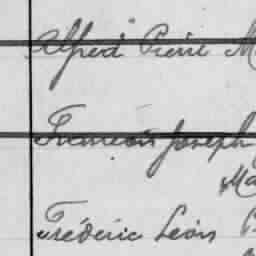 Alfred Pierre M
François Joseph
Ma
Frédéric Léon P